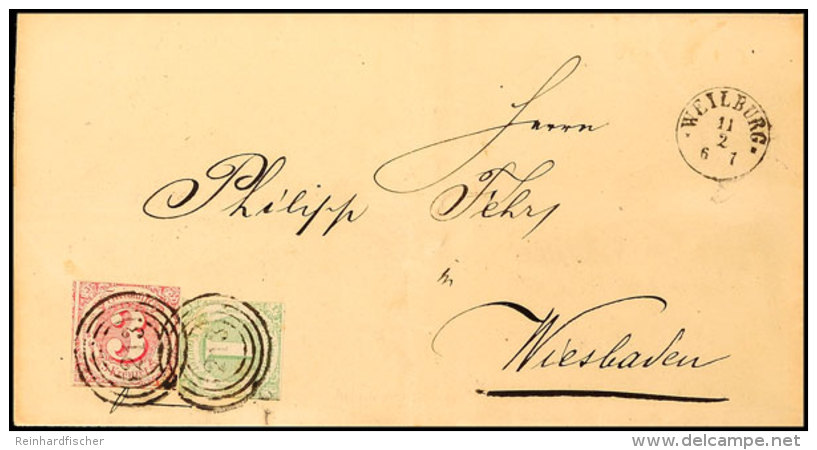 ·WEILBURG·
11
2
6 7
Herrn
Philipp Fehr
in
Wiesbaden
3
1
Reinhardfischer
© delcampe.net